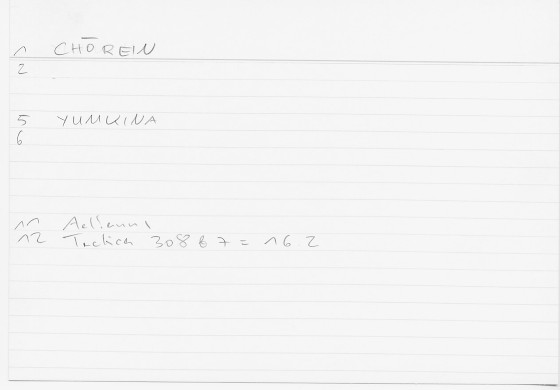 1 CHŌREIN
2
5 YUMKINA
6
11 Aelianus
12 Tactica 308 b 7 = 16 2